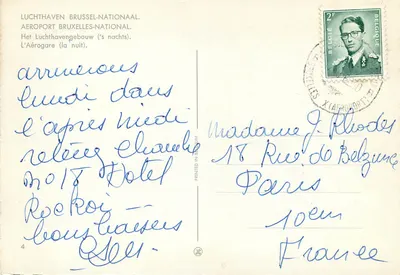 LUCHTHAVEN BRUSSEL-NATIONAAL.
AEROPORT BRUXELLES-NATIONAL.
Het Luchthavengebouw ('s nachts).
L'Aérogare (la nuit).
arriverons
lundi dans
l'après midi
Chambre
No 18 Hotel
Rocroi
bons baisers
4
2F
BELGIE-BELGIQUE
Madame J. Rhodes
18 Rue de Belzunce
Paris
10em
France